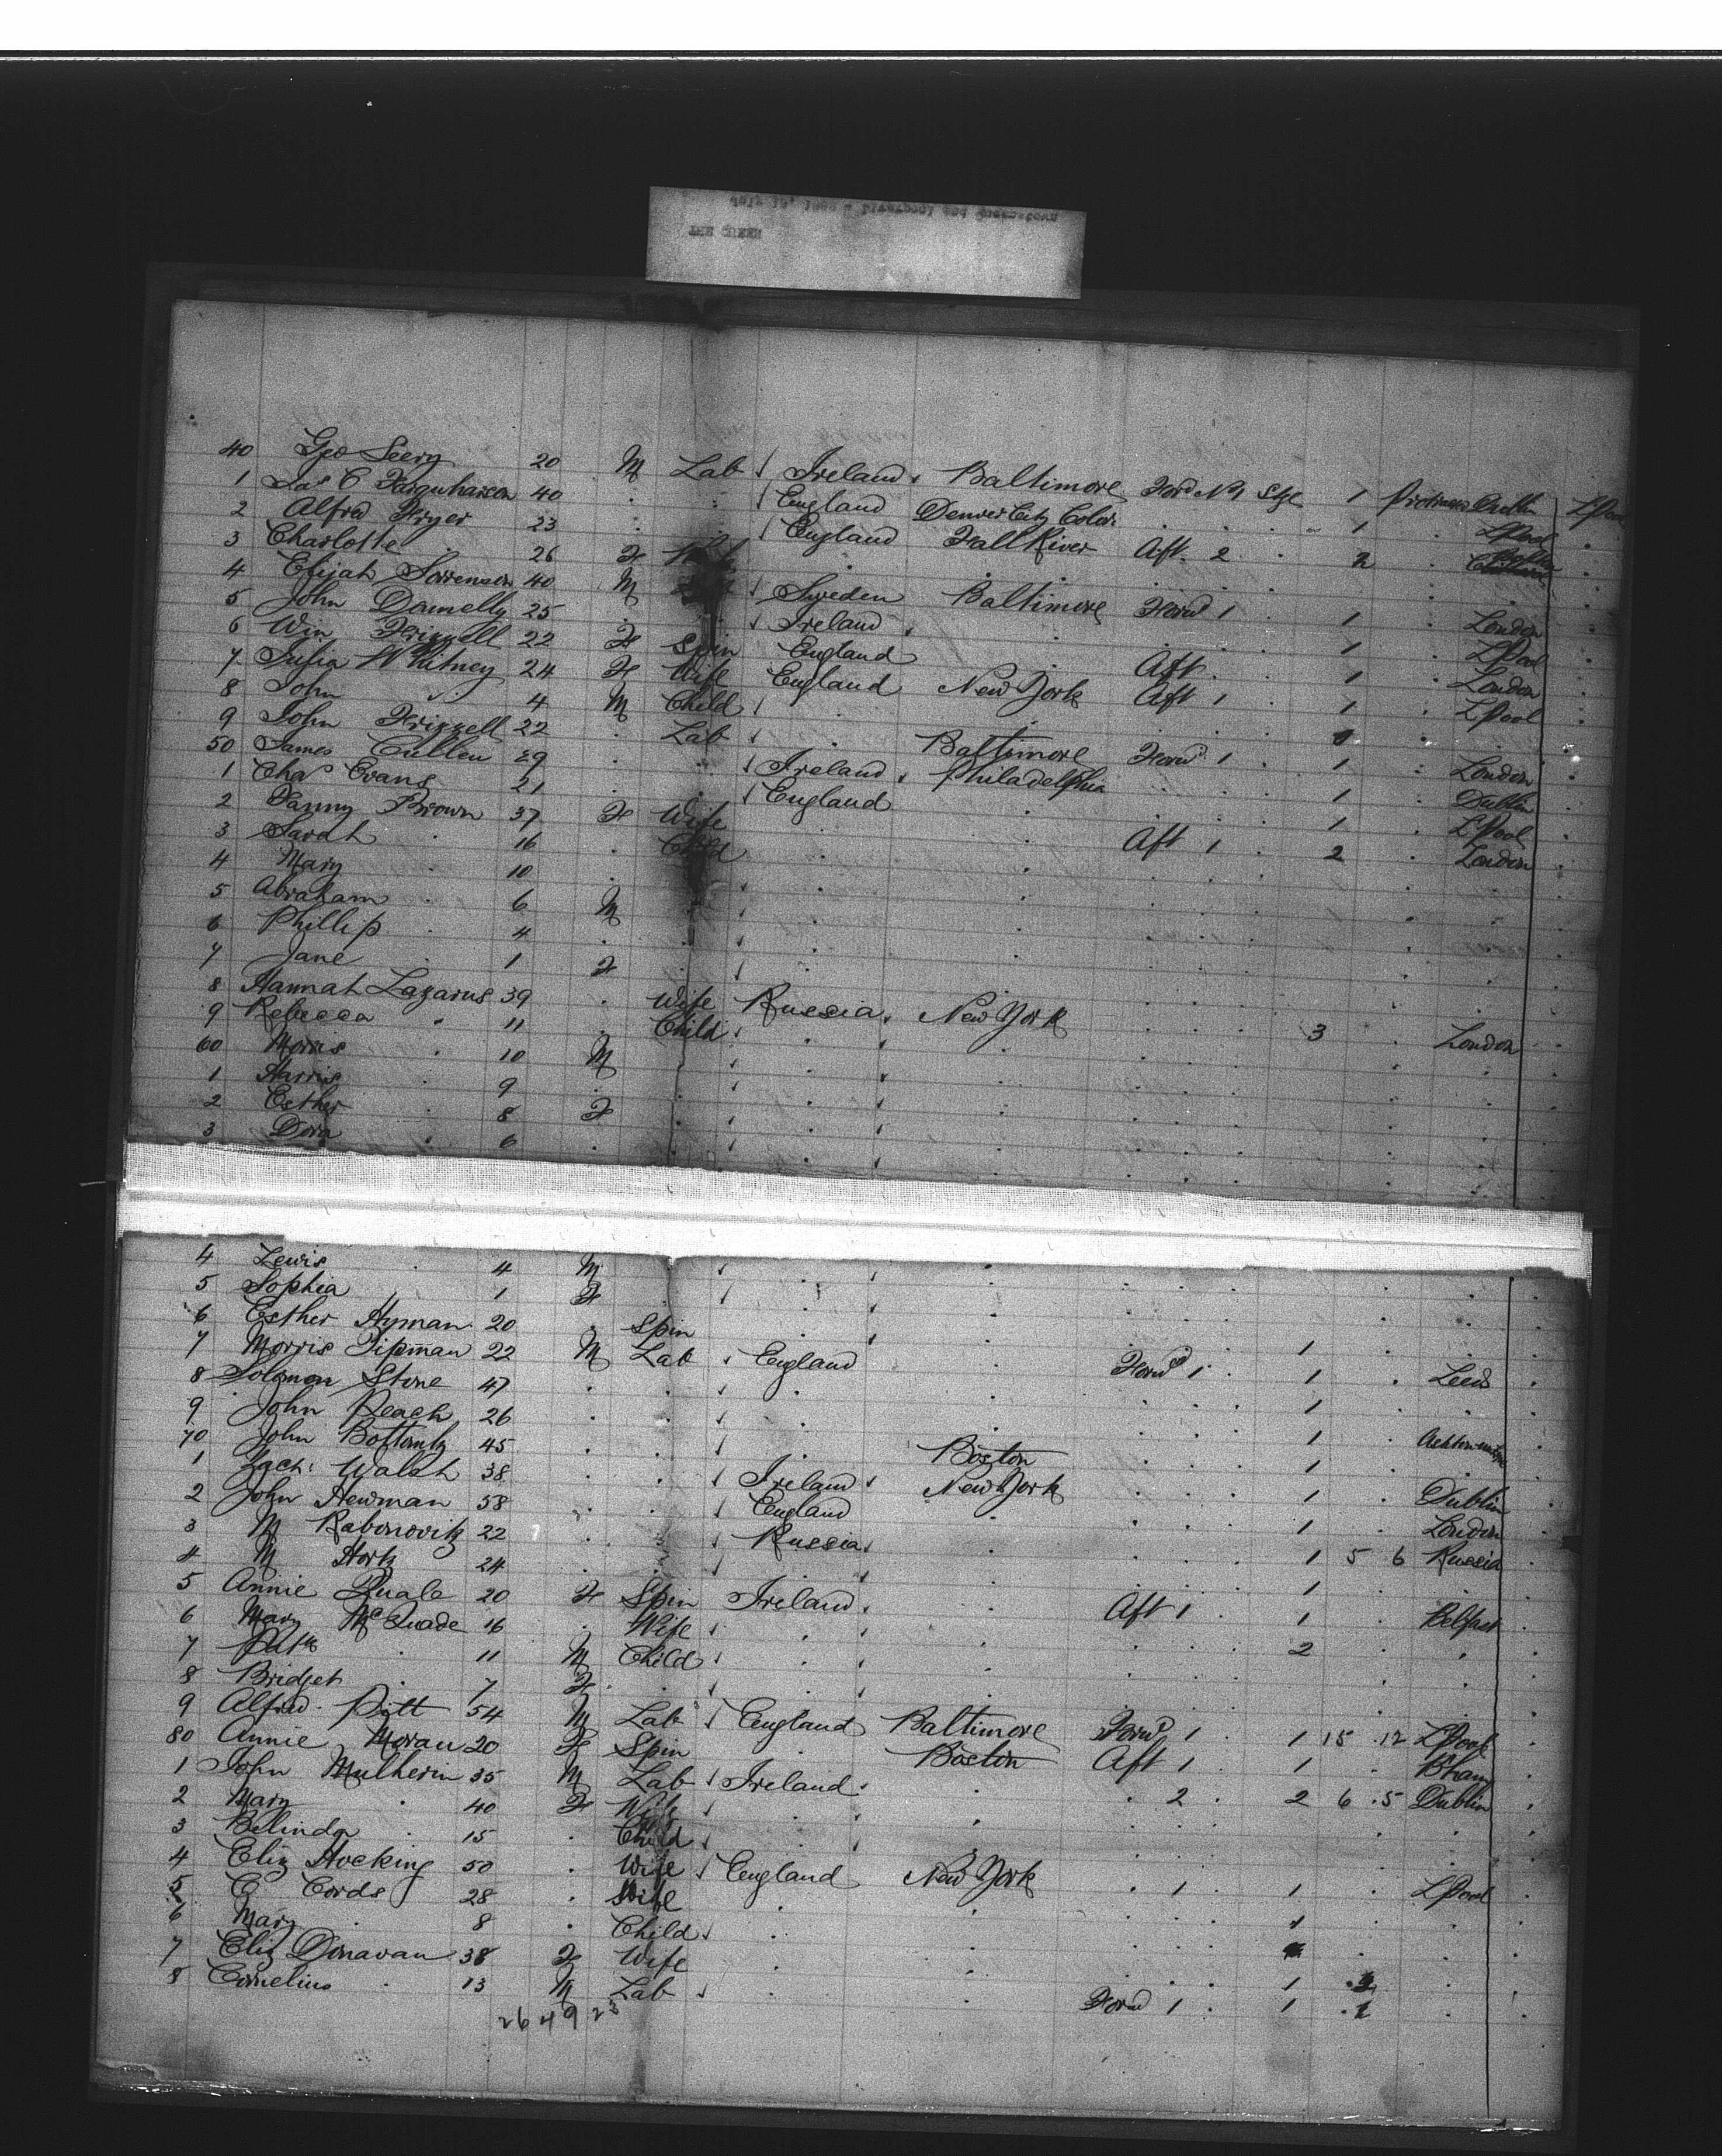 40 Geo Seery 20 M Lab Ireland Baltimore Ford No 1 Stge 1 Dublin
1 Jas C Farquharson 40 . . England Denver City Color. . . . 1 . LPool
2 Alfred Fryer 23 . . England Fall River Aft 2 . 2
3 Charlotte 26 F
4 Elijah Sorrenson 40 M Sweden Baltimore Forwd 1 . 1 London
5 John Donnelly 25 . Ireland . . . 1 . LPool
6 Win Frizzell 22 F Spin England Aft . 1 . London
7 Julia Whitney 24 F Wife England New York Aft 1 . 1 . LPool
8 John 4 M Child
9 John Frizzell 22 . Lab . Baltimore Forwd 1 . 1 London
50 James Cullen 29 . . Ireland Philadelphia . . . 1 Dublin
1 Chas Evans 21 . . England . . . . 1 . LPool
2 Fanny Brown 37 F Wife . . Aft 1 . 2 . London
3 Sarah . 16 . Child
4 Mary . 10
5 Abraham . 6 M
6 Phillip . 4
7 Jane . 1 F
8 Hannah Lazarus 39 . Wife Russia New York . . . 3 . London
9 Rebecca " 11 . Child
60 Morris . 10 M
1 Harris . 9
2 Esther . 8 F
3 Dora . 6
4 Lewis . 4 M
5 Sophia . 1 F
6 Esther Hyman 20 . Spin . . . . . 1
7 Morris Lipman 22 M Lab England . Forwd 1 . 1 . Leeds
8 Solomon Stone 47 . . . . . . . 1
9 John Peach 26 . . . . . . . 1
70 John Bottomly 45 . . . Boston . . . 1
1 Zach: Walsh 38 . . Ireland New York . . . 1 . Dublin
2 John Newman 58 . . England . . . . 1 . London
3 M Rabinovitz 22 . . Russia . . . . 1 5 6 Russia
4 M Hortz 24 . . . . . . . 1
5 Annie Quale 20 F Spin Ireland . Aft 1 . 1 . Belfast
6 Mary McQuade 16 . Wife . . . . . 2
7 Patk . 11 M Child
8 Bridget . 7 F
9 Alfred Pitt 54 M Lab England Baltimore Forwd 1 . 1 15 .12 LPool
80 Annie Moran 20 F Spin Boston Aft 1 . 1 . Bham
1 John Mulherin 35 M Lab Ireland . . 2 . 2 6 .5 Dublin
2 Mary . 40 F Wife
3 Belinda . 15 . Child
4 Eliz Hocking 50 . Wife England New York . 1 . 1 . LPool
5 C Cords 28 . Wife . . . . . 1
6 Mary . 8 . Child
7 Eliz Donavan 38 F Wife . . . . . 1
8 Cornelius . 13 M Lab . . Forwd 1 . 1
26 49 23